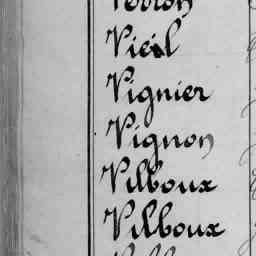 Vieil
Vignier
Vignon
Vilboux
Vilboux